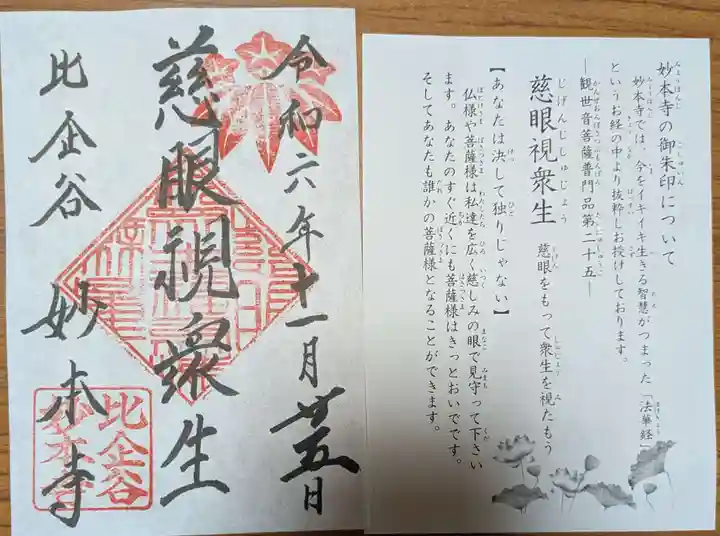 令和六年十一月廿五日
慈眼視衆生
比企谷 妙本寺
比企谷
妙本寺
妙本寺の御朱印について
妙本寺では、今をイキイキ生きる智慧がつまった「法華経」
というお経の中より抜粋しお授けしております。
―観世音菩薩普門品第二十五―
慈眼視衆生 慈眼をもって衆生を視たもう
【あなたは決して独りじゃない】
仏様や菩薩様は私達を広く慈しみの眼で見守って下さい
ます。あなたのすぐ近くにも菩薩様はきっとおいでです。
そしてあなたも誰かの菩薩様となることができます。